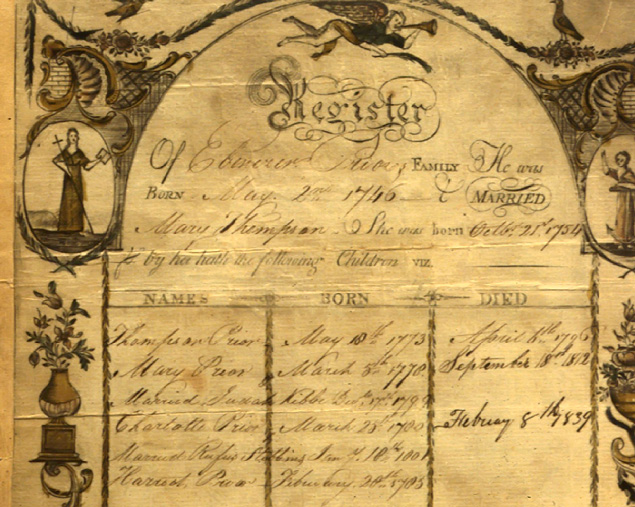 Register
Of Ebenezer Prior's FAMILY He was
BORN May. 2nd 1746 & MARRIED
Mary Thompson. She was born Octbr. 21st 1754
& by her hath the following Children VIZ.
NAMES BORN DIED
Thompson Prior May 18th 1773 April
Mary Prior March 5th 1778 September 18th 1812
Married Kibbe 1799
Charlotte Prior March 23d 1780 Februay 8th 1839
Married Rufus Stebbins
Harriot, Prior February, 1785